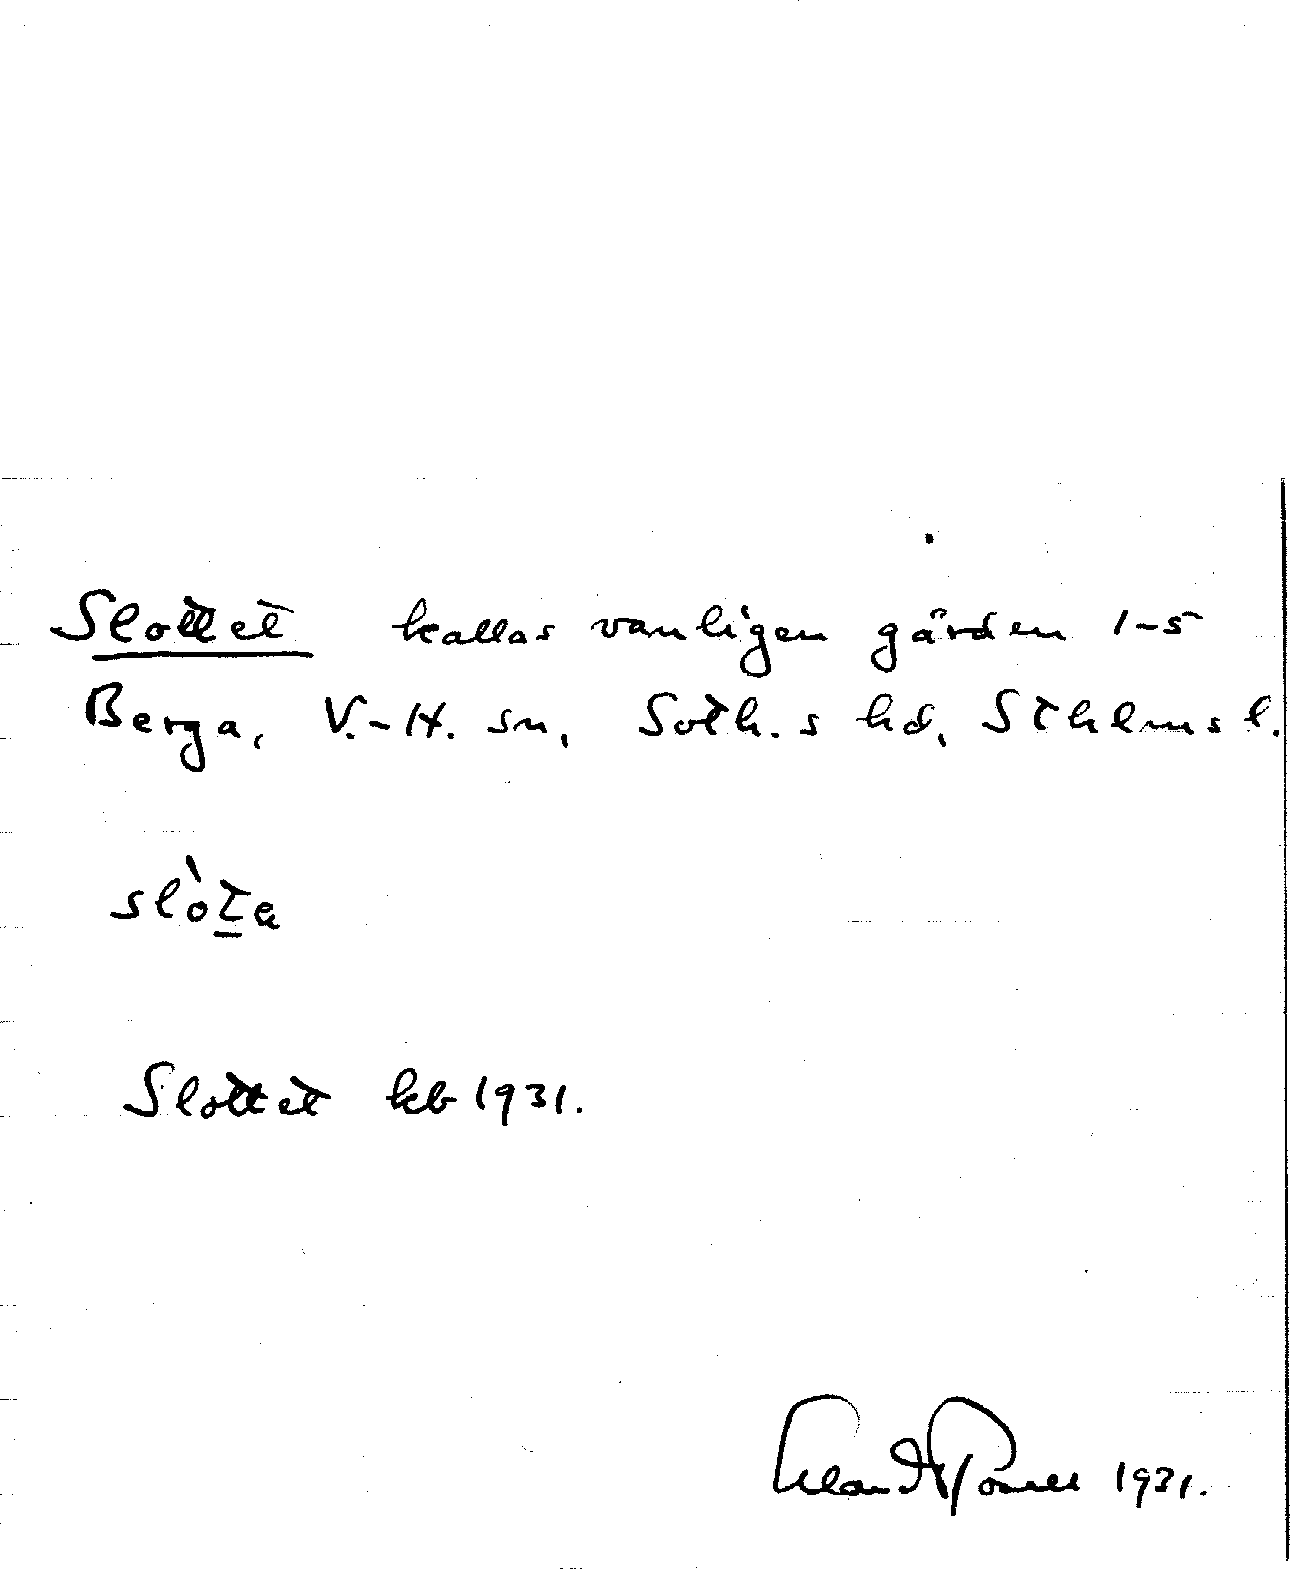 Slottet kallas vanligen gården 1-5
Berga, V.-H. sn, Soth.s hd, Sthlms l.
slòta
Slottet kb 1931.
1931.